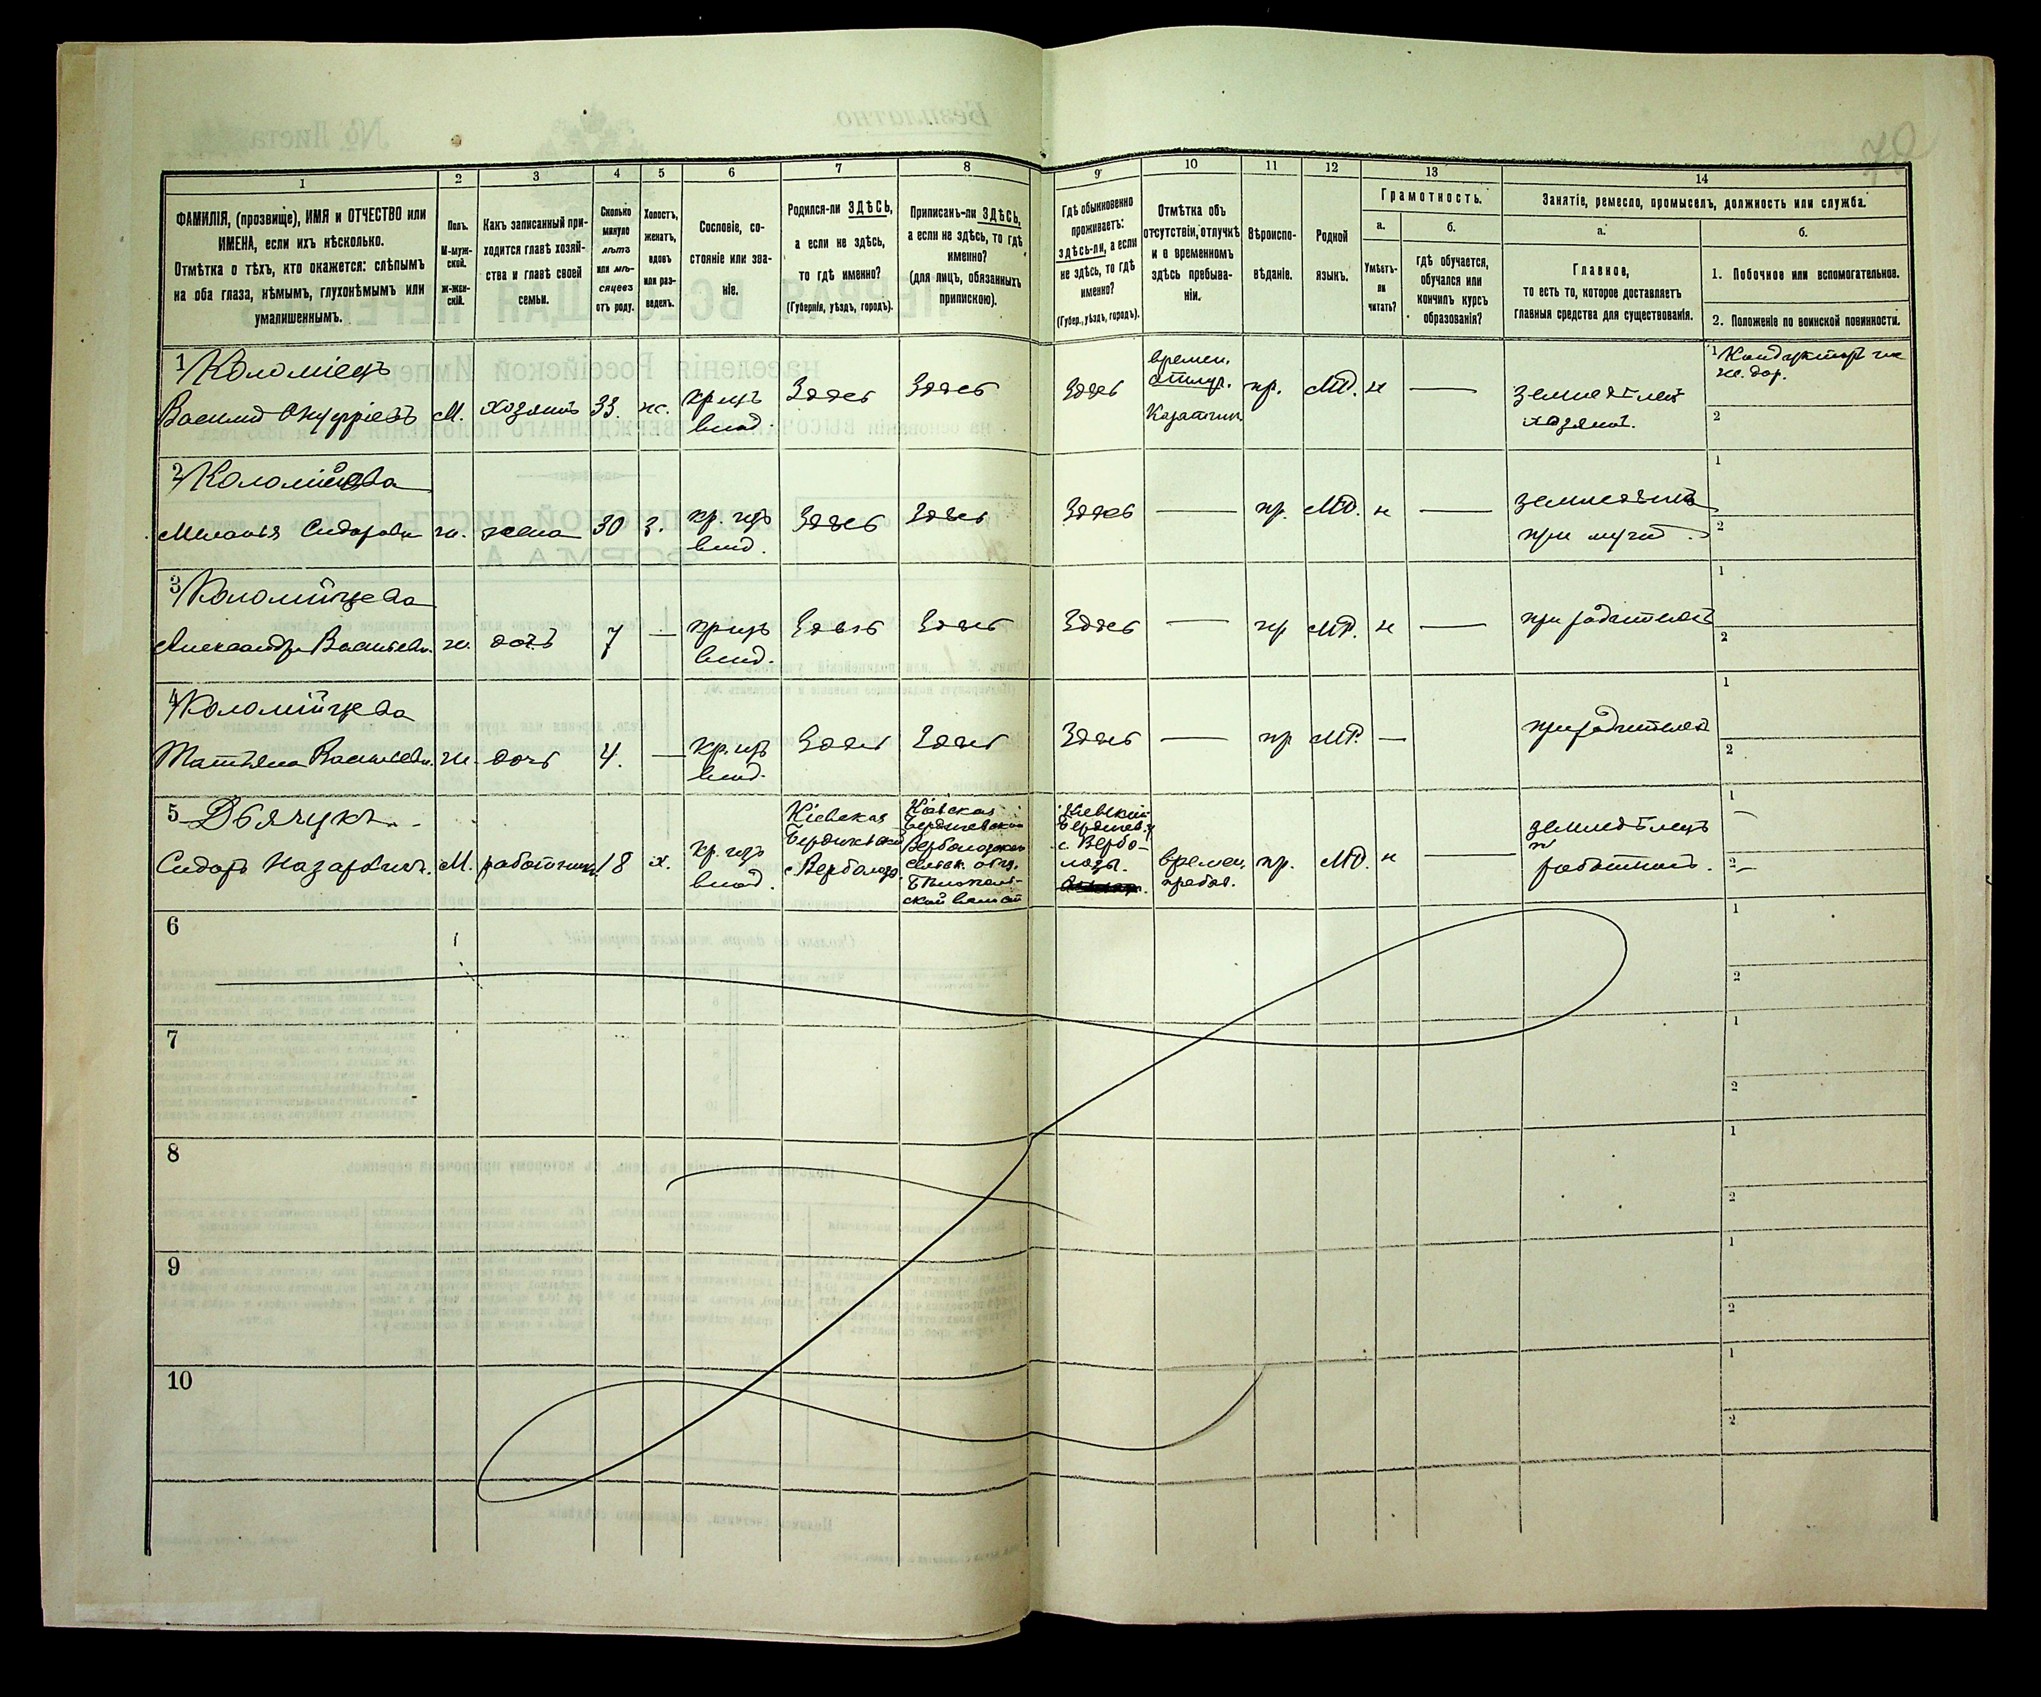 72
1
2
3
4
5
6
7
8
9
10
11
12
13
14
ФАМИЛІЯ, (прозвище), ИМЯ и ОТЧЕСТВО или
ИМЕНА, если ихъ нѣсколько.
Отмѣтка о тѣхъ, кто окажется: слѣпымъ
на оба глаза, нѣмымъ, глухонѣмымъ или
умалишеннымъ.
Полъ.
М-муж-
ской.
Ж-жен-
скій.
Какъ записанный при-
ходится главѣ хозяй-
ства и главѣ своей
семьи.
Сколько
минуло
лѣтъ
или мѣ-
сяцевъ
отъ роду.
Холостъ,
женатъ,
вдовъ
или раз-
веденъ.
Сословіе, со-
стояніе или зва-
ніе.
Родился-ли ЗДѢСЬ,
а если не здѣсь,
то гдѣ именно?
(Губернія, уѣздъ, городъ).
Приписанъ-ли ЗДѢСЬ,
а если не здѣсь, то гдѣ
именно?
(для лицъ, обязанныхъ
припискою).
Гдѣ обыкновенно
проживаетъ:
здѣсь-ли, а если
не здѣсь, то гдѣ
именно?
(Губер., уѣздъ, городъ).
Отмѣтка объ
отсутствіи, отлучкѣ
и о временномъ
здѣсь пребыва-
ніи.
Вѣроиспо-
вѣданіе.
Родной
языкъ.
Грамотность.
а.
Умѣетъ-
ли
читать?
б.
гдѣ обучается,
обучался или
кончилъ курсъ
образованія?
Занятіе, ремесло, промыселъ, должность или служба.
а.
Главное,
то есть то, которое доставляетъ
главныя средства для существованія.
б.
1. Побочное или вспомогательное.
2. Положеніе по воинской повинности.
1 Коломіецъ
Василій Онуфріевъ М. хозяинъ 33. ж. кр. изъ влад. Здѣсь Здѣсь Здѣсь времен. отлуч. Казатинъ пр. МР. н — земледѣлецъ хозяинъ.
1 Кондукторъ на
же. дор.
2
2 Коломійцева
Меланья Сидоровн ж. жена 30 з. кр. изъ влад. Здѣсь Здѣсь Здѣсь — пр. МР. н — при мужѣ
1
2
3 Коломійцева
Александра Васильевн. ж. дочь 7 — кр. изъ влад. Здѣсь Здѣсь Здѣсь — пр МР. н — при родителяхъ
1
2
4 Коломійцева
Татьяна Васильевн. ж. дочь 4. — кр. изъ влад. Здѣсь Здѣсь Здѣсь — пр МР. — при родителяхъ
1
2
5 Дьячукъ
Сидоръ Назарьевъ. М. работникъ 18 х. кр. изъ влад.
Кіевская
Бердичевскій
с Верболозы
Кіевская
Бердичевскій
Верболозское
сельск. общ.
скій волости
Кіевская
Бердичев. у
с. Вербо-
лозы.
времен.
пребыв.
пр. МР. н —
земледѣлецъ
работникъ.
1 —
2 —
6
1
2
7
1
2
8
1
2
9
1
2
10
1
2